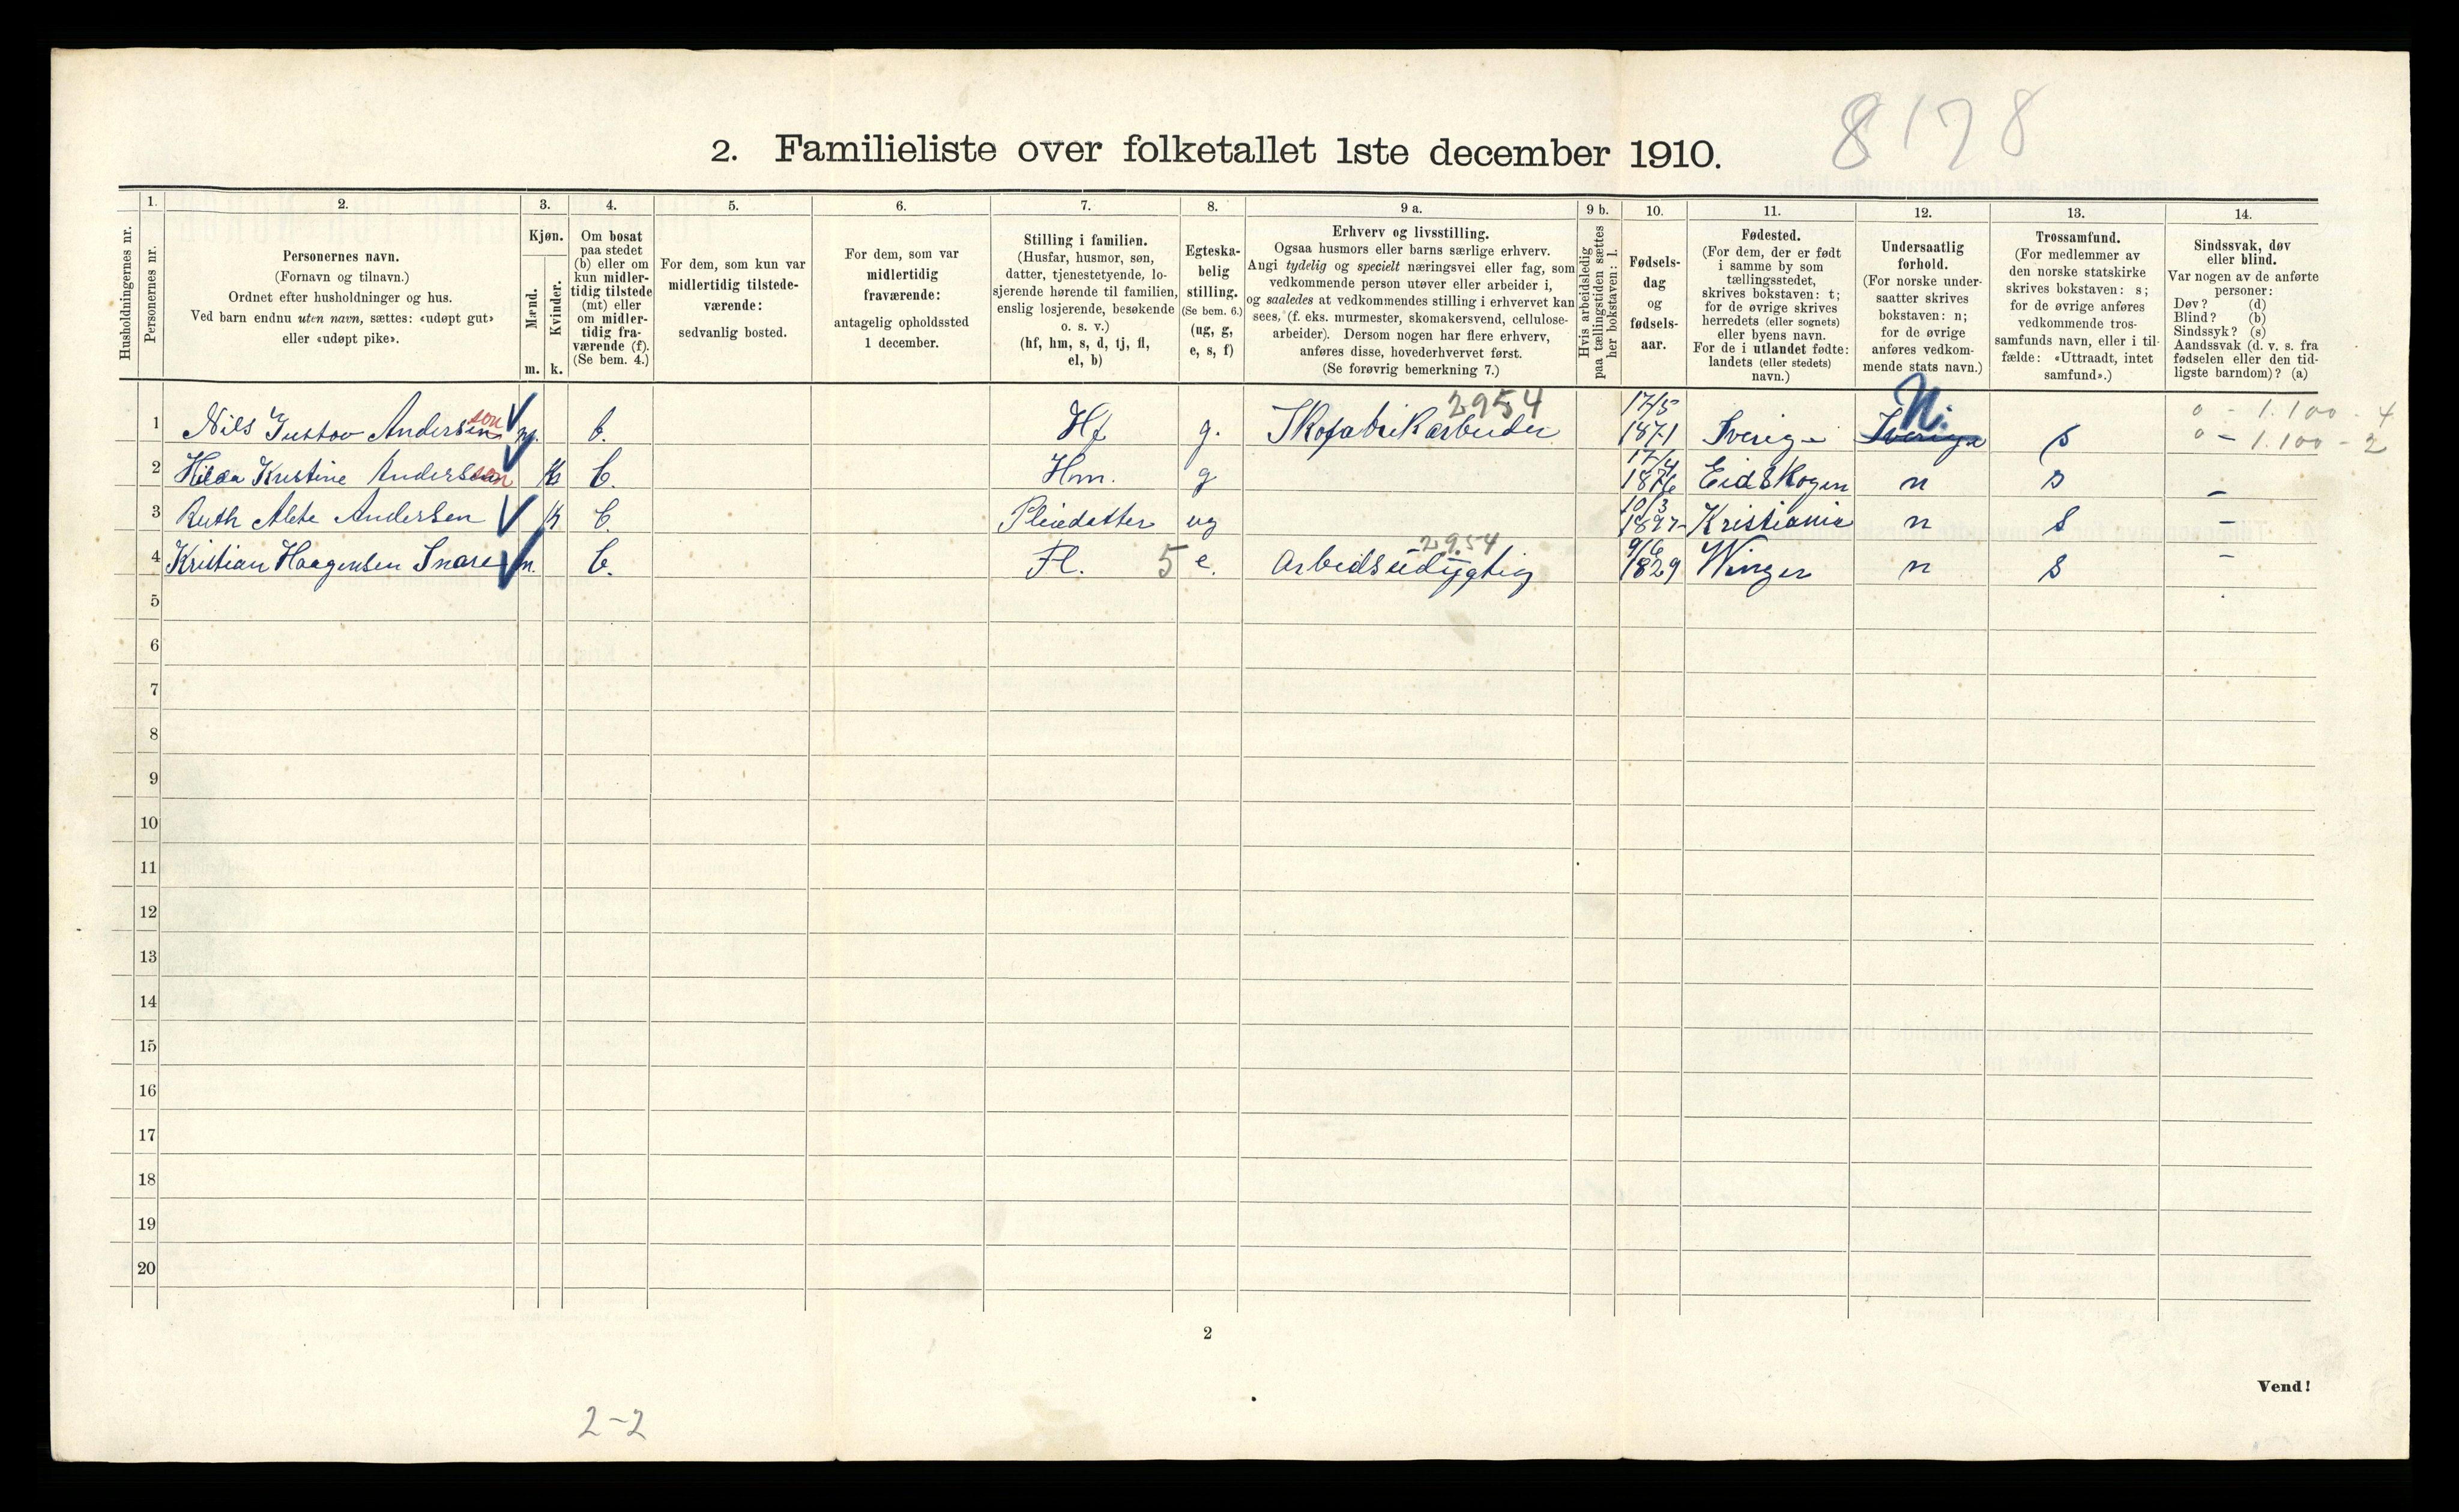 8178
2. Familieliste over folketallet 1ste december 1910.
Husholdningernes nr.
1.
Personernes nr.
2.
Personernes navn.
(Fornavn og tilnavn.)
Ordnet efter husholdninger og hus.
Ved barn endnu uten navn, sættes: «udøpt gut»
eller «udøpt pike».
3.
Kjøn.
Mænd.
Kvinder.
m. k.
4.
Om bosat
paa stedet
(b) eller om
kun midler-
tidig tilstede
(mt) eller
om midler-
tidig fra-
værende (f).
(Se bem. 4.)
5.
For dem, som kun var
midlertidig tilstede-
værende:
sedvanlig bosted.
6.
For dem, som var
midlertidig
fraværende:
antagelig opholdssted
1 december.
7.
Stilling i familien.
(Husfar, husmor, søn,
datter, tjenestetyende, lo-
sjerende hørende til familien,
enslig losjerende, besøkende
o. s. v.)
(hf, hm, s, d, tj, fl,
el, b)
8.
Egteska-
belig
stilling.
(Se bem. 6.)
(ug, g,
e, s, f)
9 a.
Erhverv og livsstilling.
Ogsaa husmors eller barns særlige erhverv.
Angi tydelig og specielt næringsvei eller fag, som
vedkommende person utøver eller arbeider i,
og saaledes at vedkommendes stilling i erhvervet kan
sees, (f. eks. murmester, skomakersvend, cellulose-
arbeider). Dersom nogen har flere erhverv,
anføres disse, hovederhvervet først.
(Se forøvrig bemerkning 7.)
9 b.
Hvis arbeidsledig
paa tællingstiden sættes
her bokstaven: l.
10.
Fødsels-
dag
og
fødsels-
aar.
11.
Fødested.
(For dem, der er født
i samme by som
tællingsstedet,
skrives bokstaven: t;
for de øvrige skrives
herredets (eller sognets)
eller byens navn.
For de i utlandet fødte:
landets (eller stedets)
navn.)
12.
Undersaatlig
forhold.
(For norske under-
saatter skrives
bokstaven: n;
for de øvrige
anføres vedkom-
mende stats navn.)
13.
Trossamfund.
(For medlemmer av
den norske statskirke
skrives bokstaven: s;
for de øvrige anføres
vedkommende tros-
samfunds navn, eller i til-
fælde: «Uttraadt, intet
samfund».)
14.
Sindssvak, døv
eller blind.
Var nogen av de anførte
personer:
Døv? (d)
Blind? (b)
Sindssyk? (s)
Aandssvak (d. v. s. fra
fødselen eller den tid-
ligste barndom)? (a)
1 Nils Gustav Andersen son m. b. Hf g. Skofabrikarbeider 2954 17/5 1871 Sverige Sverige N. s 0 - 1.100 - 4
0 - 1.100 - 2
2 Hilda Kristine Andersen son k b. Hm. g 17/4 1876 Eidskogen n s -
3 Ruth Alete Andersen k b. Pleiedatter ug 10/3 1897 Kristiania n s -
4 Kristian Haagensen Snare m. b. Fl. 5 e. Arbeidsudygtig 2954 9/6 1829 Winger n s -
5
6
7
8
9
10
11
12
13
14
15
16
17
18
19
20
2
Vend!
2-2